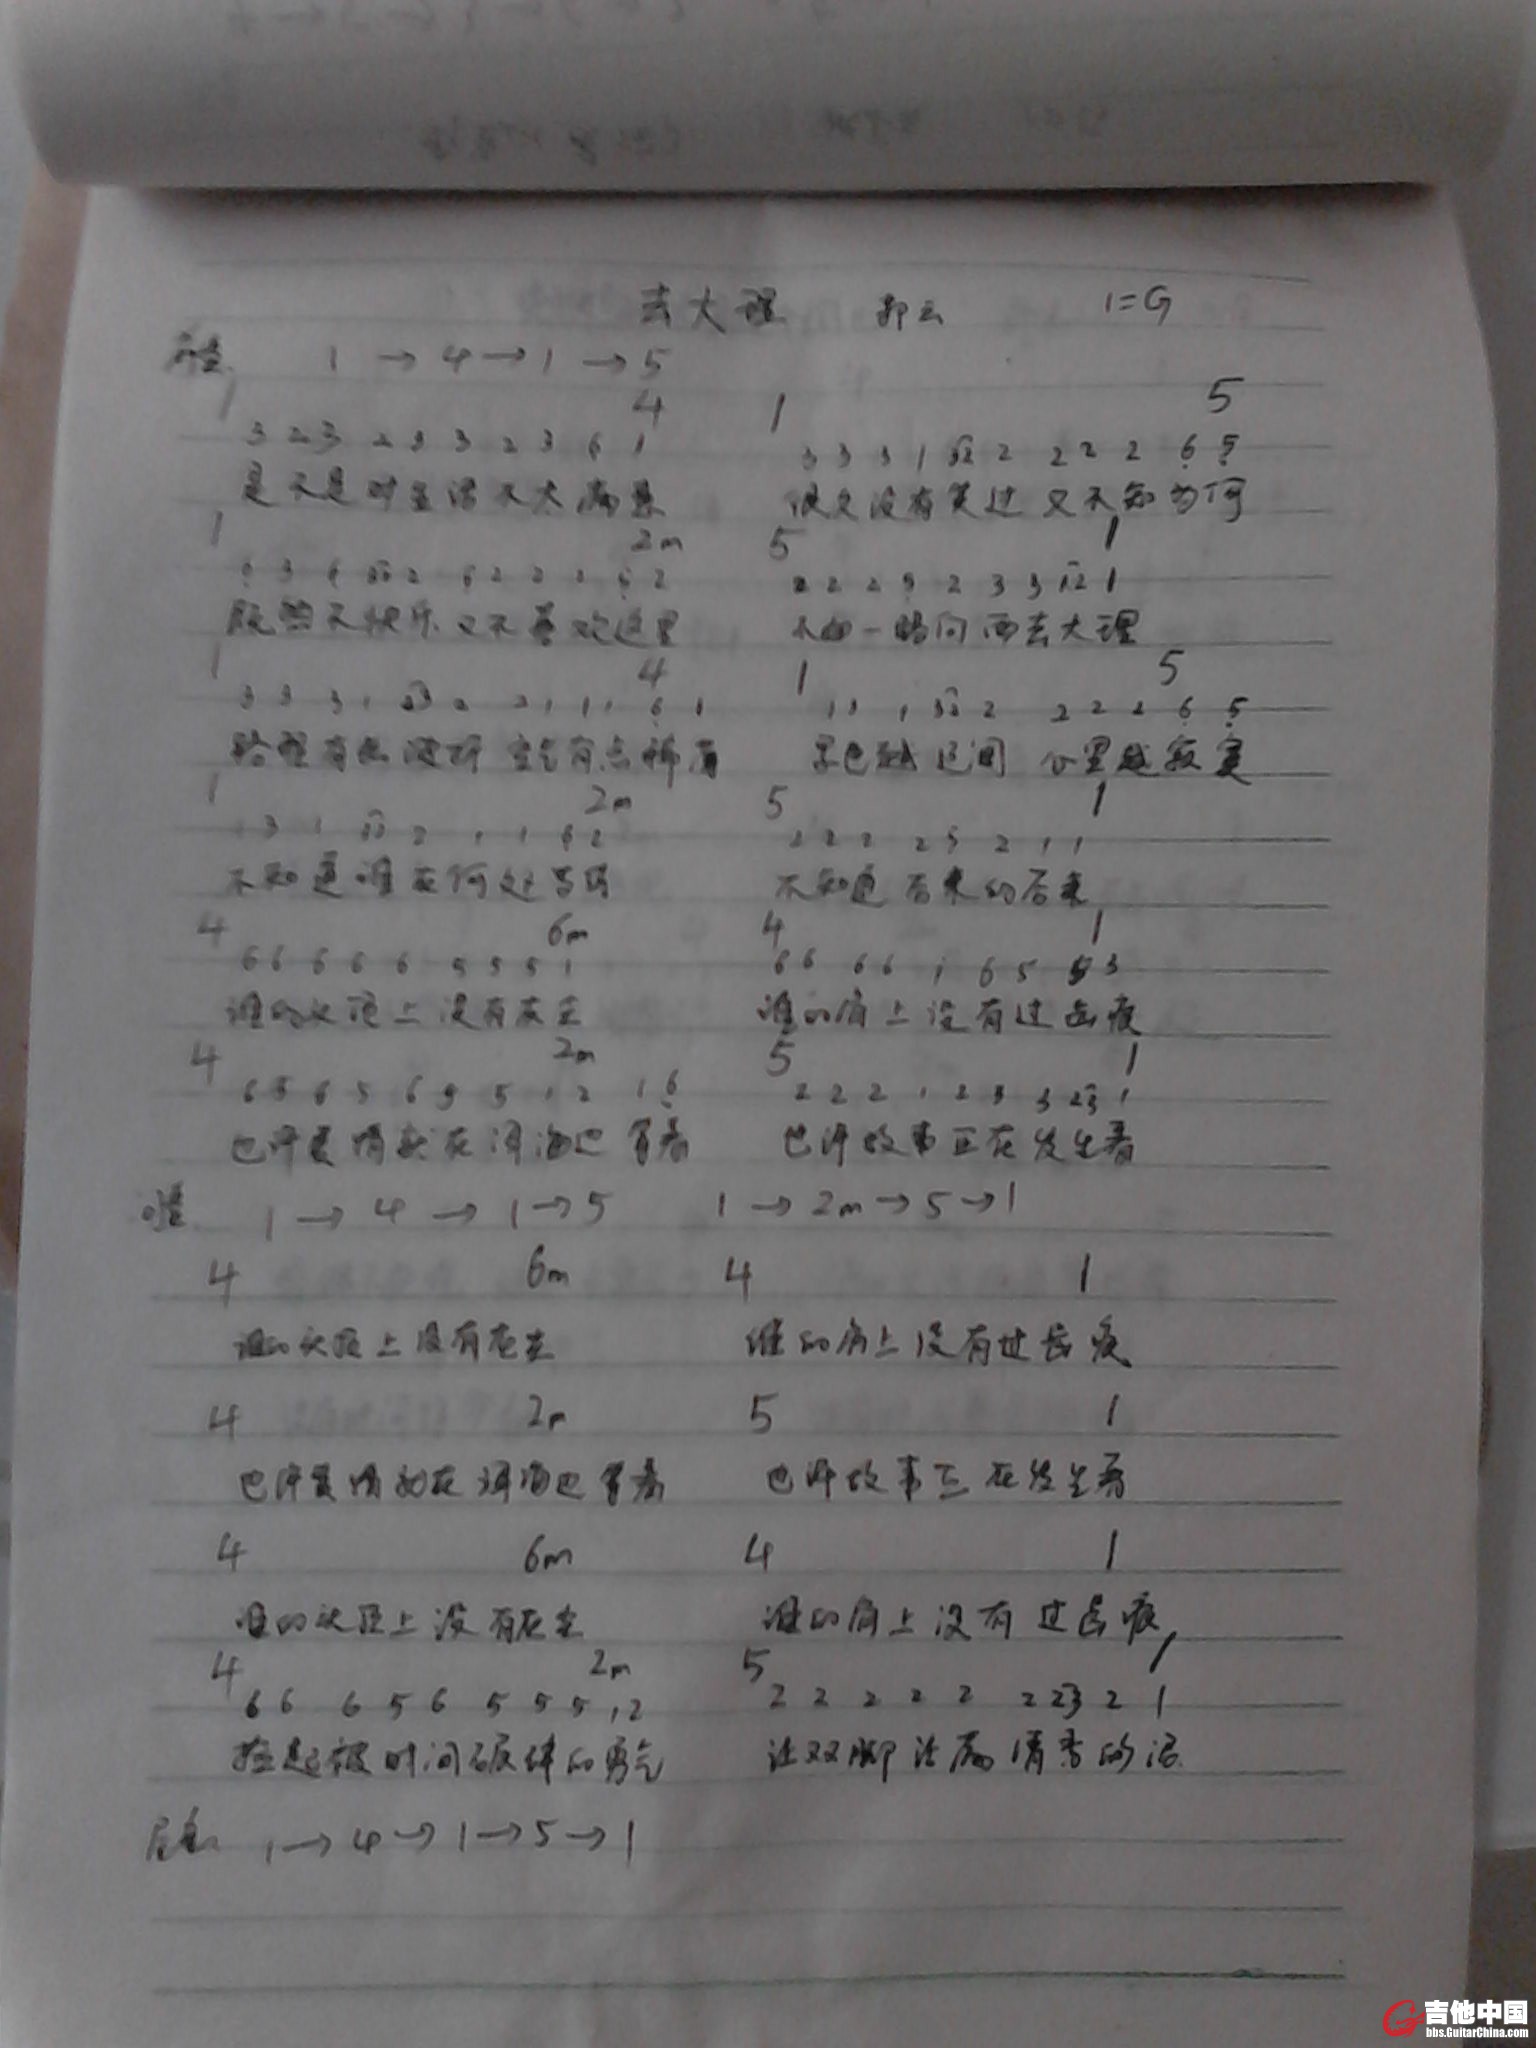 去大理 郝云 1=G
前奏 1 → 4 → 1 → 5
1 4 1 5
3 2 3 2 3 3 2 3 6 1 3 3 3 1 32 2 2 2 2 6 5
是不是对生活不太满意 很久没有笑过又不知为何
1 2m 5 1
2 2 2 3 2 3 3 12 1
既然不快乐又不喜欢这里 不如一路向西去大理
1 4 1 5
3 3 3 1 23 2 2 1 1 1 6 1 1 3 1 32 2 2 2 2 6 5
路程有点波折 空气有点稀薄 景色越辽阔 心里越寂寞
1 2m 5 1
1 3 1 2 1 1 6 2 2 2 2 2 3 2 1 1
不知道谁在何处等待 不知道后来的后来
4 6m 4 1
6 6 6 6 6 5 5 5 1 6 6 6 6 1 6 5 5 3
谁的头顶上没有灰尘 谁的肩上没有过齿痕
4 2m 5 1
6 5 6 5 6 5 5 1 2 1 6 2 2 2 1 2 3 3 23 1
也许爱情就在洱海边等着 也许故事正在发生着
间奏 1 → 4 → 1 → 5 1 → 2m → 5 → 1
4 6m 4 1
谁的头顶上没有灰尘 谁的肩上没有过齿痕
4 2m 5 1
也许爱情就在洱海边等着 也许故事正在发生着
4 6m 4 1
谁的头顶上没有灰尘 谁的肩上没有过齿痕
4 2m 5 1
6 6 6 5 6 5 5 5 1 2 2 2 2 2 2 2 23 2 1
捡起被时间的勇气 让双脚沾满清香的泥
尾奏 1 → 4 → 1 → 5 → 1
吉他中国
bbs.GuitarChina.com